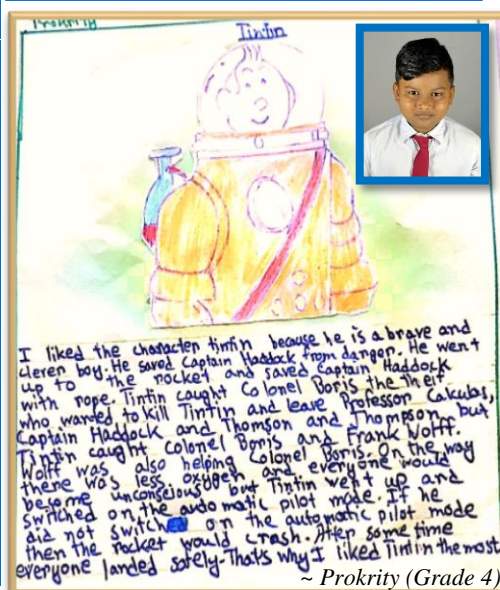 Prokrity
Tintin
I liked the character tintin because he is a brave and
clever boy. He saved Captain Haddock from danger. He went
up to the rocket and saved Captain Haddock
with rope. Tintin caught Colonel Boris the theif
who wanted to kill Tintin and leave Professor Calculas,
Captain Haddock and Thomson and Thompson but
Tintin caught Colonel Boris and Frank Wolff.
Wolff was also helping Colonel Boris. On the way
there was less oxygen and everyone would
become unconscious but Tintin went up and
switched on the automatic pilot mode. If he
did not switch on the automatic pilot mode
then the rocket would crash. After some time
everyone landed safely. That's why I liked Tintin the most
~ Prokrity (Grade 4)